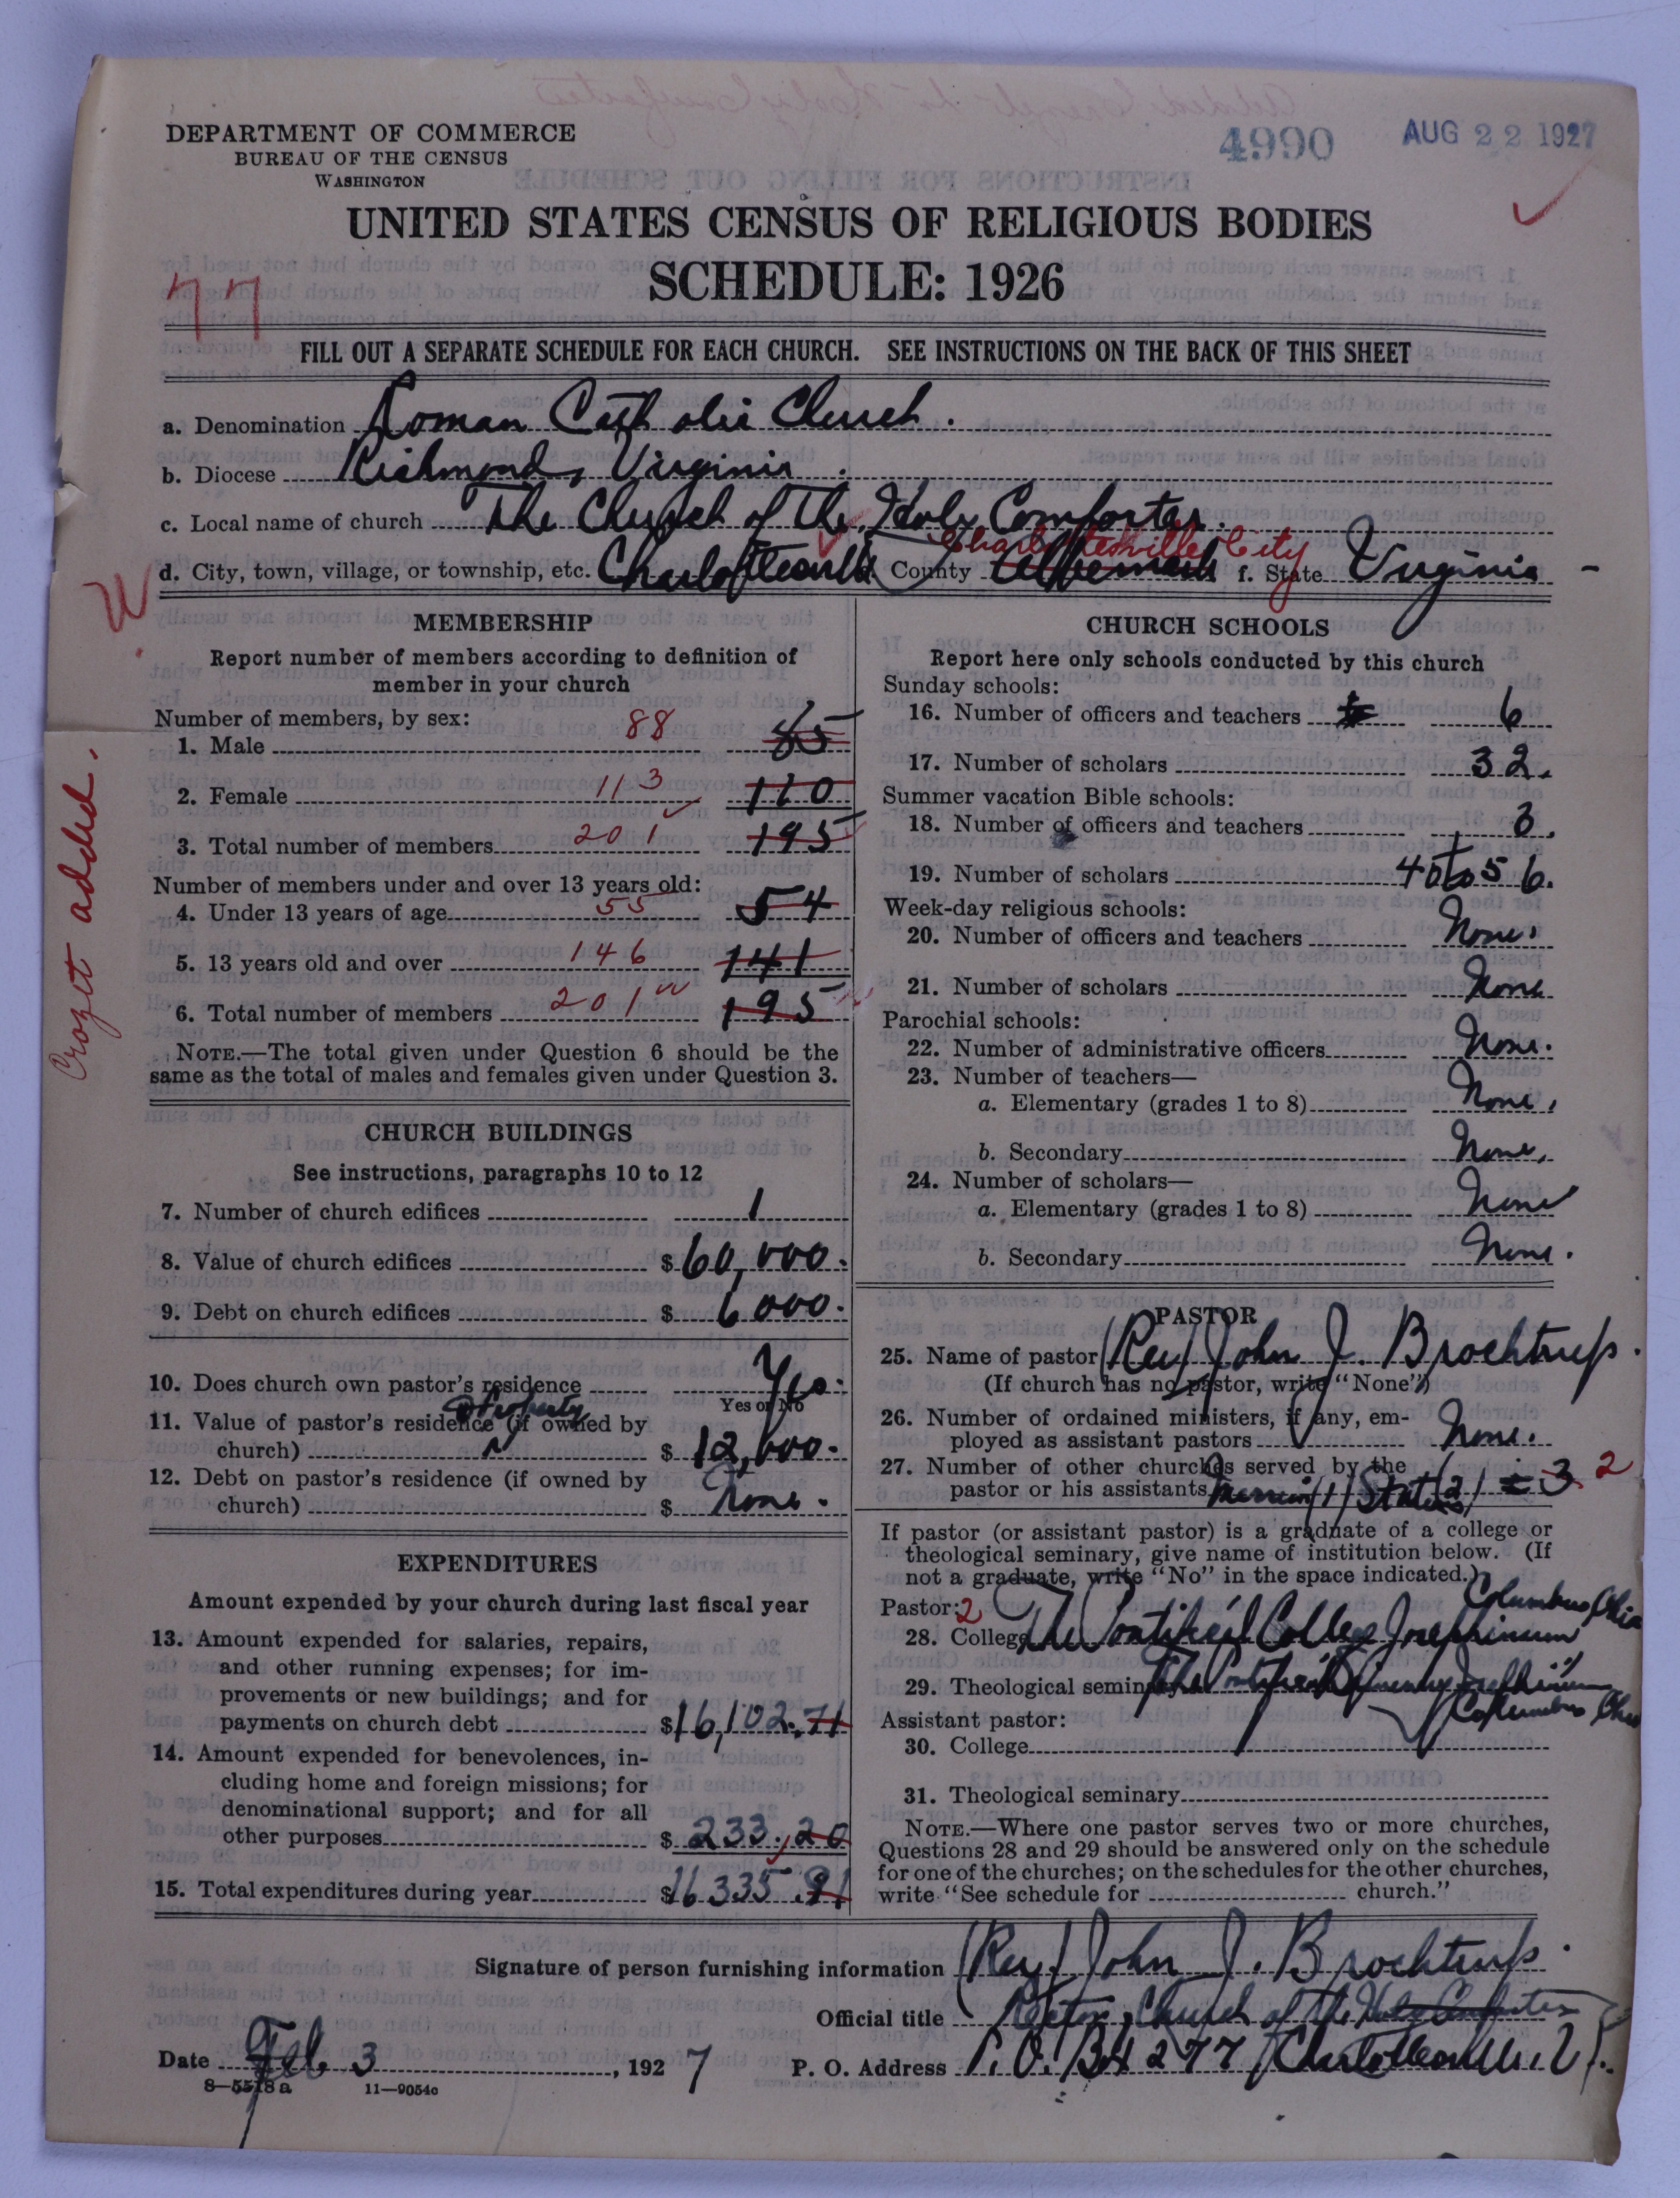 4990 AUG 22 1927
DEPARTMENT OF COMMERCE
BUREAU OF THE CENSUS
WASHINGTON
UNITED STATES CENSUS OF RELIGIOUS BODIES
SCHEDULE: 1926
77
FILL OUT A SEPARATE SCHEDULE FOR EACH CHURCH. SEE INSTRUCTIONS ON THE BACK OF THIS SHEET
a. Denomination Roman Catholic Church.
b. Diocese Richmond, Virginia.
c. Local name of church The Church of The Holy Comforter.
Charlottesville City
d. City, town, village, or township, etc. Charlottesville County Albemarle f. State Virginia
Crozet added.
MEMBERSHIP
Report number of members according to definition of
member in your church
Number of members, by sex:
1. Male 88 85
2. Female 113 110
3. Total number of members 201 195
Number of members under and over 13 years old:
4. Under 13 years of age 55 54
5. 13 years old and over 146 141
6. Total number of members 201 195
NOTE.—The total given under Question 6 should be the
same as the total of males and females given under Question 3.
CHURCH BUILDINGS
See instructions, paragraphs 10 to 12
7. Number of church edifices 1
8. Value of church edifices $60,000.
9. Debt on church edifices $6000.
10. Does church own pastor's residence Yes.
Yes or No
property
11. Value of pastor's residence (if owned by
church) $12,000.
12. Debt on pastor's residence (if owned by
church) $ None.
EXPENDITURES
Amount expended by your church during last fiscal year
13. Amount expended for salaries, repairs,
and other running expenses; for im-
provements or new buildings; and for
payments on church debt $16,102.71
14. Amount expended for benevolences, in-
cluding home and foreign missions; for
denominational support; and for all
other purposes $233.20
15. Total expenditures during year $16335.91
CHURCH SCHOOLS
Report here only schools conducted by this church
Sunday schools:
16. Number of officers and teachers 6
17. Number of scholars 32.
Summer vacation Bible schools:
18. Number of officers and teachers 3.
19. Number of scholars 40 to 56.
Week-day religious schools:
20. Number of officers and teachers None.
21. Number of scholars None
Parochial schools:
22. Number of administrative officers None.
23. Number of teachers—
a. Elementary (grades 1 to 8) None.
b. Secondary None.
24. Number of scholars—
a. Elementary (grades 1 to 8) None
b. Secondary None.
PASTOR
25. Name of pastor (Rev) John J. Brochtrup.
(If church has no pastor, write "None")
26. Number of ordained ministers, if any, em-
ployed as assistant pastors None.
27. Number of other churches served by the
pastor or his assistants Mission (1) Stations (2) = 3 2
If pastor (or assistant pastor) is a graduate of a college or
theological seminary, give name of institution below. (If
not a graduate, write "No" in the space indicated.)
Pastor: 2 Columbus, Ohio
28. College The Pontifical College Josephinum
29. Theological seminary The Pontifical Seminary Josephinum
Columbus Ohio
Assistant pastor:
30. College
31. Theological seminary
NOTE.—Where one pastor serves two or more churches,
Questions 28 and 29 should be answered only on the schedule
for one of the churches; on the schedules for the other churches,
write "See schedule for church."
Signature of person furnishing information (Rev) John J. Brochtrup.
Official title Rector, Church of the Holy Comforter
Date Feb. 3, 1927 P. O. Address P.O. Box 277 Charlottesville, Va.
8—5518a 11—9054c